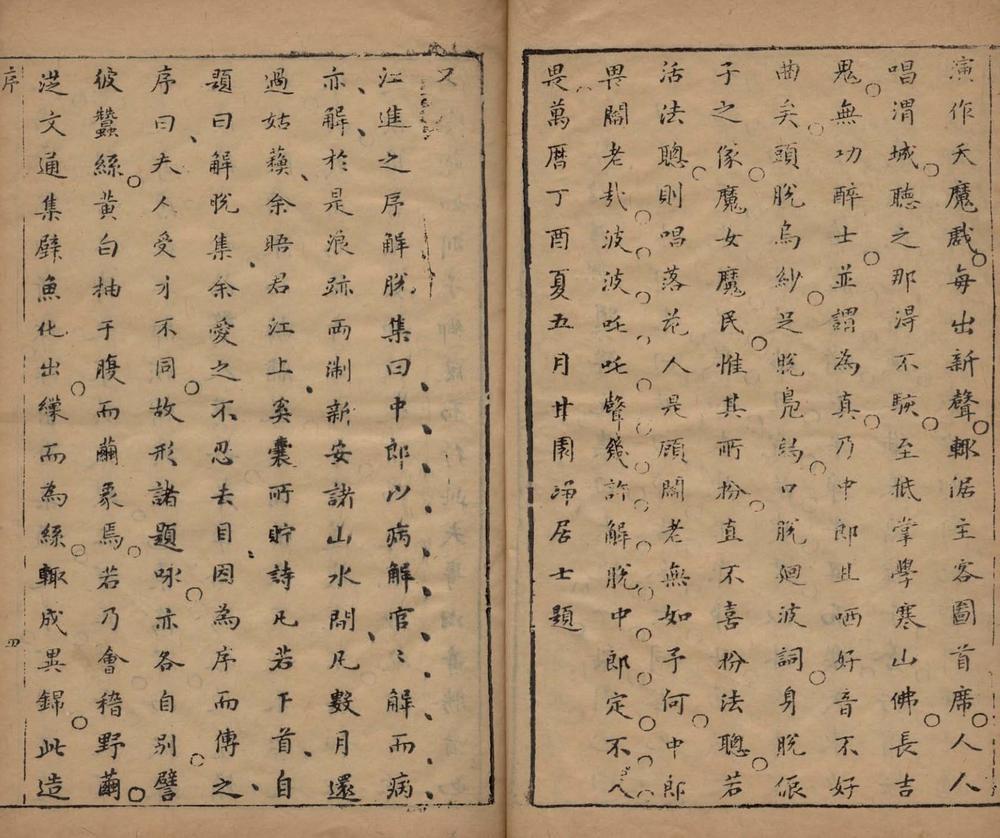 演作天魔戲每出新聲輙㞐主客圖首席人人
唱渭城聽之那得不駭至抵掌學寒山佛長吉
鬼無功醉士並謂為真乃中郎且哂好音不好
曲矣頭脫烏紗足脫鳧舄口脫廻波詞身脫𠈁
子之像魔女魔民惟其所扮直不喜扮法聰若
活法聰則唱落花人是顧閻老無如予何中郎
畏閻老哉波波吒吒聲幾許解脫中郎定不
畏萬曆丁酉夏五月廿園净居士題
又
江進之序解脫集曰中郎以病解官〻解而病
亦解於是浪跡兩淛新安諸山水間凡數月還
過姑蘓余晤君江上奚囊所貯詩凡若干首自
題曰解脫集余愛之不忍去目因為序而傳之
序曰夫人受才不同故形諸題咏亦各自別譬
彼蠶絲黃白抽于腹而繭象焉若乃會稽野繭
従文通集壁魚化出繅而為絲輙成異錦此造
序
四